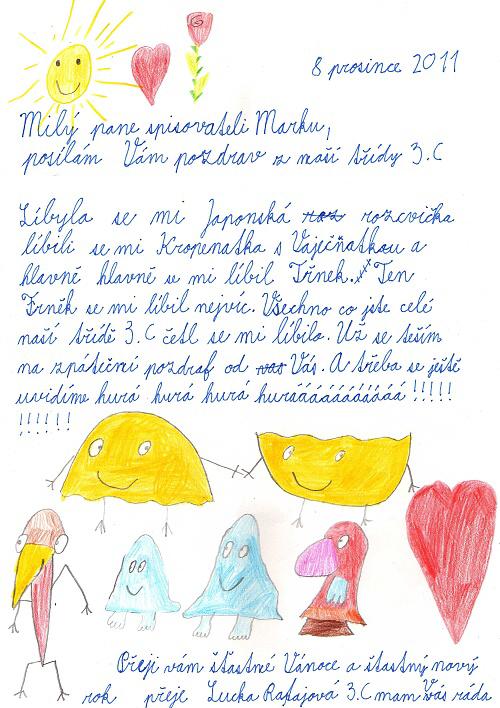 8 prosince 2011
Milý pane spisovateli Marku,
posílám Vám pozdrav z naší třídy 3.C
Líbyla se mi Japonská roz rozcvička
líbili se mi Kropenatka s Vaječňatkou a
hlavně hlavně se mi líbil Třnek. Ten
Frněk se mi líbil nejvíc. Všechno co jste celé
naší třídě 3.C četl se mi líbilo. Už se těším
na zpáteční pozdraf od vas Vás. A třeba se ještě
uvidíme hurá hurá hurá huráááááááááááá !!!!!
!!!!!!
Přeji vám štastné Vánoce a štastný nový
rok přeje Lucka Rafajová 3.C mam Vás ráda